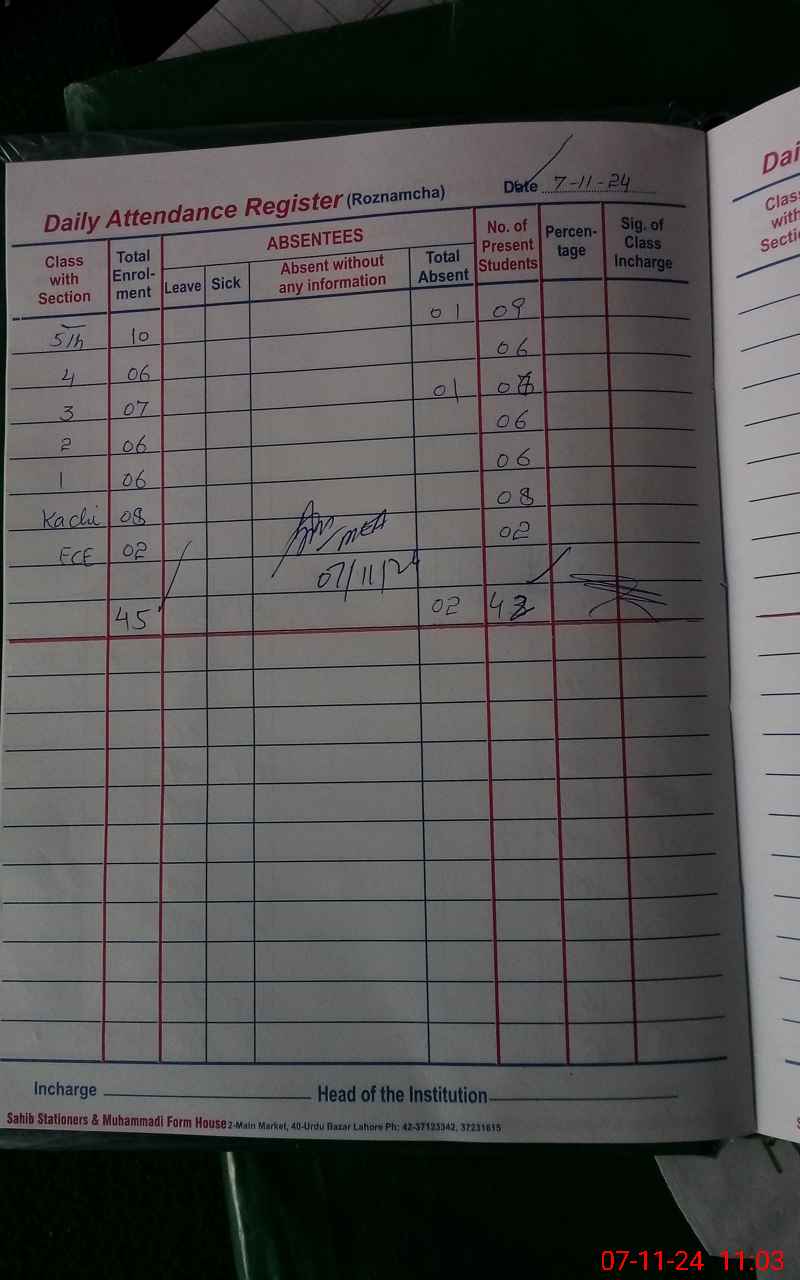 Daily Attendance Register (Roznamcha) Date 7-11-24
Class with Section Total Enrol-ment ABSENTEES No. of Present Students Percen-tage Sig. of Class Incharge
Leave Sick Absent without any information Total Absent
5th 10 01 09
4 06 06
3 07 01
2 06 06
1 06 06
Kachi 08 08
ECE 02 02
MEA
07/11/24
45 02
Incharge Head of the Institution
Sahib Stationers & Muhammadi Form House 2-Main Market, 40-Urdu Bazar Lahore Ph: 42-37123342, 37231615
Dai
Class
with
Secti
07-11-24 11:03